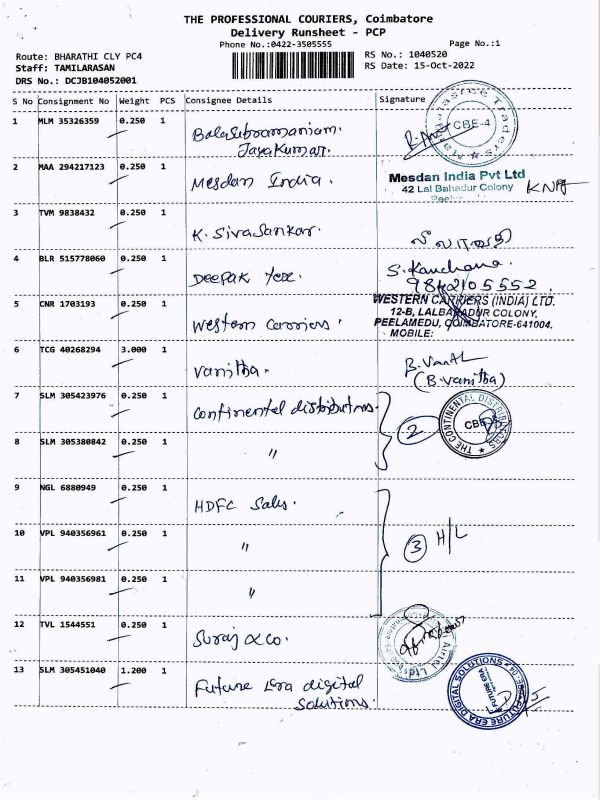 THE PROFESSIONAL COURIERS, Coimbatore
Delivery Runsheet - PCP
Phone No.:0422-3505555
Page No.:1
Route: BHARATHI CLY PC4
RS No.: 1040520
Staff: TAMILARASAN
RS Date: 15-Oct-2022
DRS No.: DCJB104052001
S No Consignment No Weight PCS Consignee Details Signature
1 MLM 35326359 0.250 1
Balasubramaniam.
Jayakumar.
CBE-4
2 MAA 294217123 0.250 1
Mesdan India.
Mesdan India Pvt Ltd
42 Lal Bahadur Colony
3 TVM 9838432 0.250 1
K. Sivasankar.
4 BLR 515778060 0.250 1
Deepak Tex.
S. Kanchana.
9842105552
5 CNR 1703193 0.250 1
Western Carriers.
WESTERN CARRIERS (INDIA) LTD.
12-B, LALBAHADUR COLONY,
PEELAMEDU, COIMBATORE-641004.
MOBILE:
6 TCG 40268294 3.000 1
Vanitha.
(B. Vanitha)
7 SLM 305423976 0.250 1
Continental distributors.
2
THE CONTINENTAL DISTRIBUTORS
CBE
8 SLM 305380842 0.250 1
"
9 NGL 6880949 0.250 1
HDFC Sales.
10 VPL 940356961 0.250 1
"
3 H/L
11 VPL 940356981 0.250 1
"
12 TVL 1544551 0.250 1
Suraj & co.
Airtel Ltd
13 SLM 305451040 1.200 1
Future Era digital
Solutions.
FUTURE ERA DIGITAL SOLUTIONS
FUTURE ERA